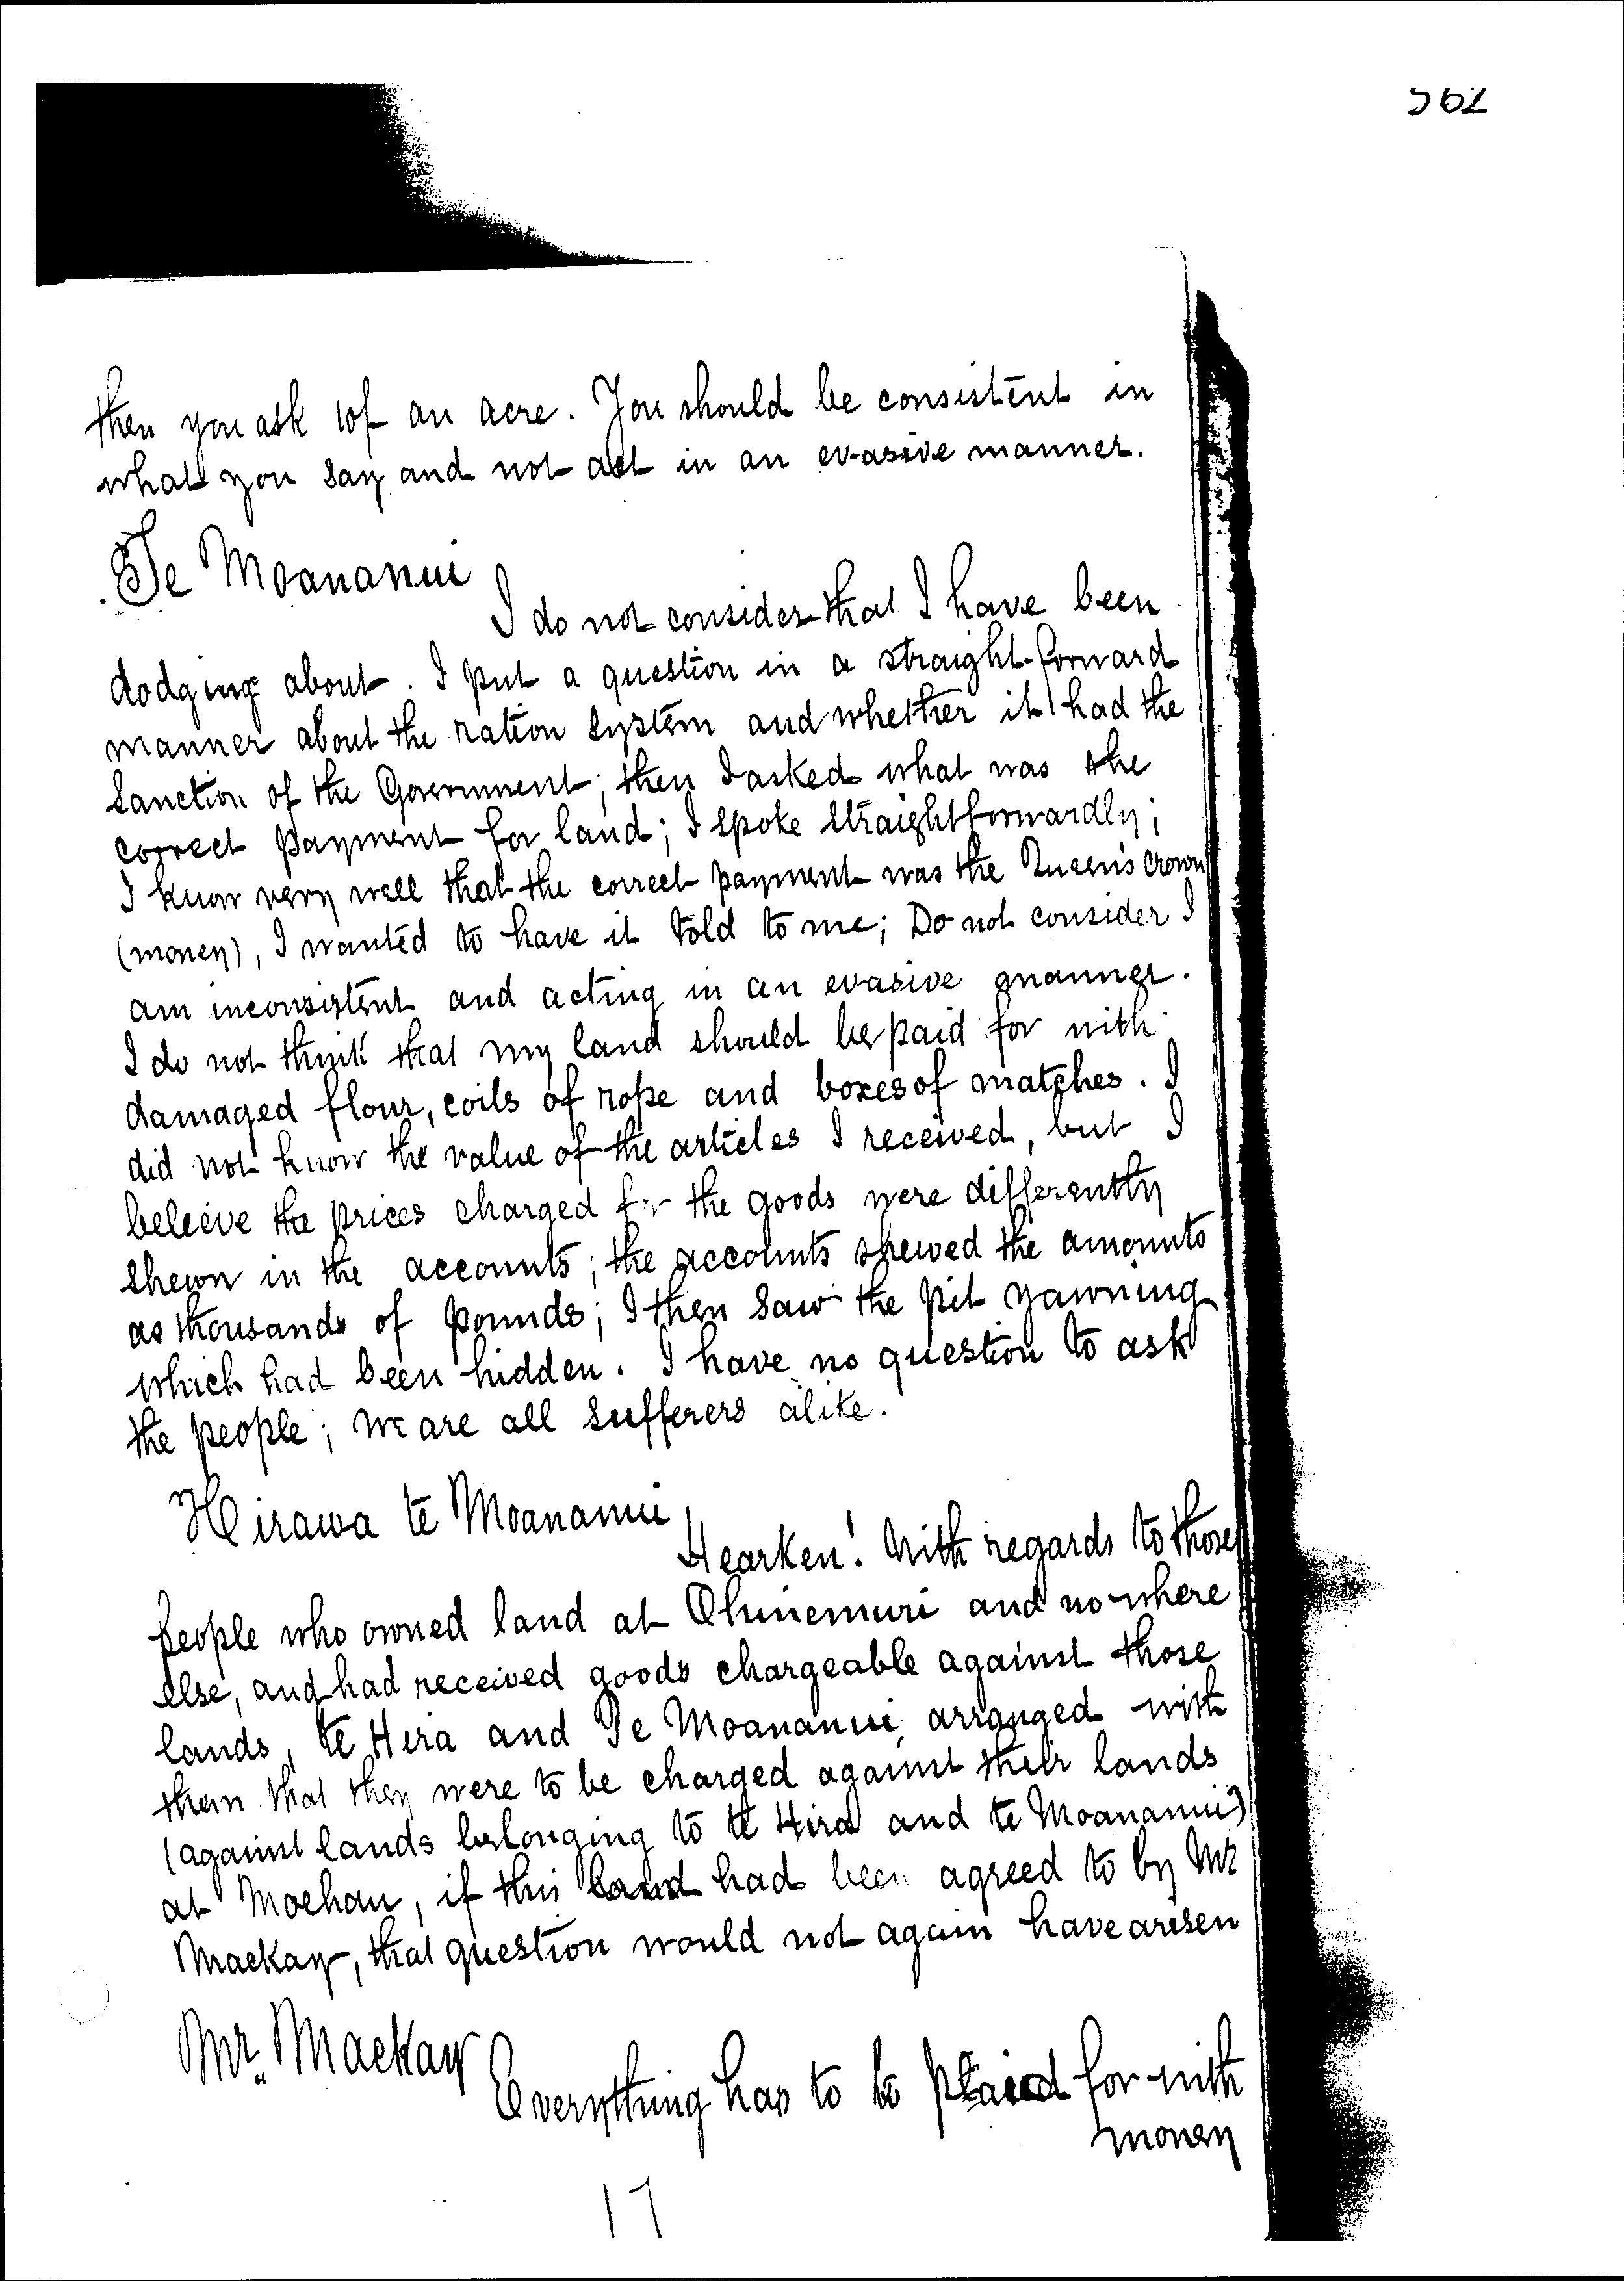 562
then you ask 10/- an acre. You should be consistent in
what you say and not act in an evasive manner.
Te Moananui
I do not consider that I have been
dodging about. I put a question in a straight-forward
manner about the ration system and whether it had the
sanction of the Government; then I asked what was the
correct payment for land; I spoke straightforwardly;
I know very well that the correct payment was the Queen's crown
(money), I wanted to have it told to me; Do not consider I
am inconsistent and acting in an evasive manner.
I do not think that my land should be paid for with
damaged flour, coils of rope and boxes of matches. I
did not know the value of the articles I received, but I
beleive the prices charged for the goods were differently
shewn in the accounts; the accounts shewed the amounts
as thousands of pounds; I then saw the pit yawning
which had been hidden. I have no question to ask
the people; we are all sufferers alike.
Hirawa te Moananui
Hearken! With regards to those
people who owned land at Ohinemuri and no where
else, and had received goods chargeable against those
lands, te Hira and Te Moananui arranged with
them that they were to be charged against their lands
(against lands belonging to te Hira and te Moananui)
at Moehau, if this had been agreed to by Mr
Mackay, that question would not again have arisen
Mr. Mackay
Everything has to be paid for with
money
17